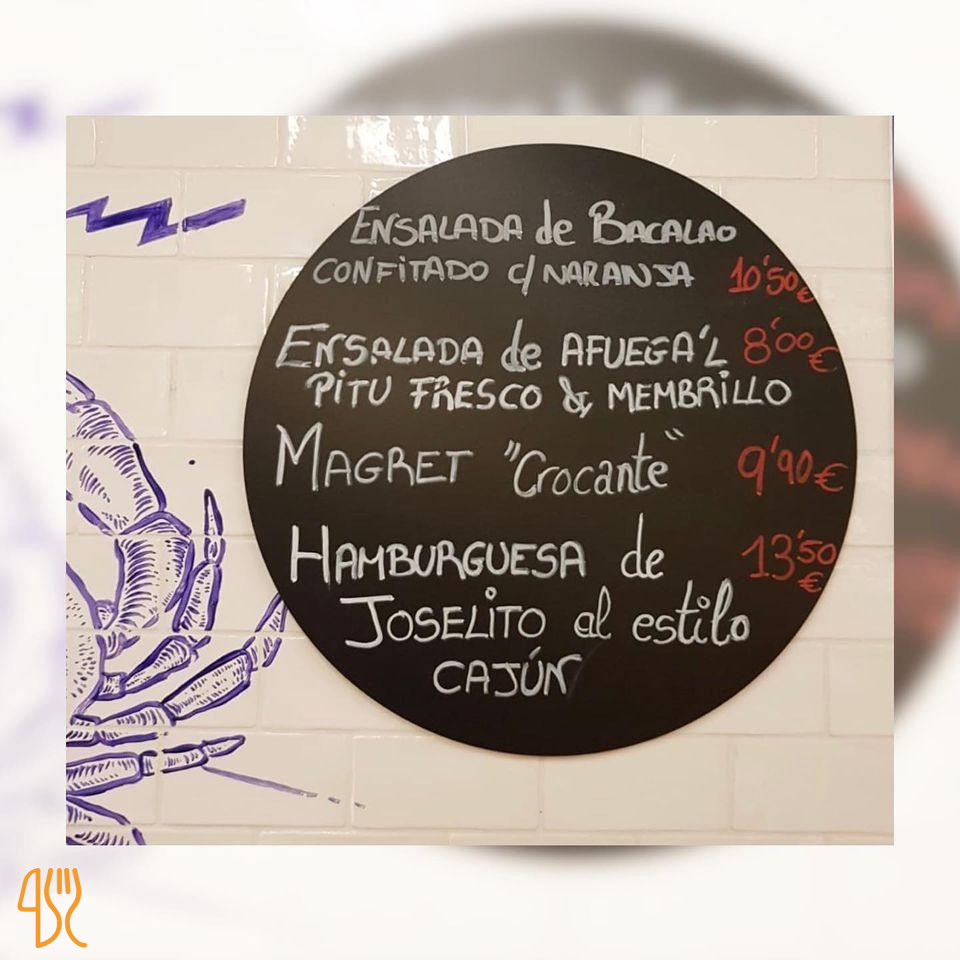 ENSALADA de BACALAO
CONFITADO c/ NARANJA 10'50€
ENSALADA de AFUEGA'L 8'00€
PITU FRESCO & MEMBRILLO
MAGRET "Crocante" 9'90€
HAMBURGUESA de 13'50€
JOSELITO al estilo
CAJÚN